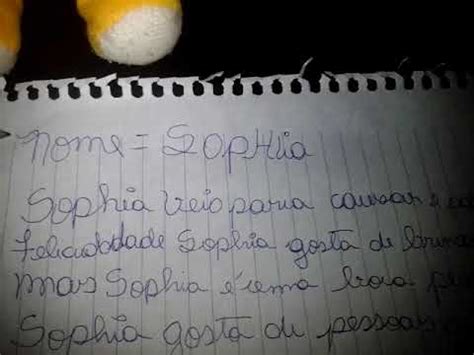 Nome = SOPHia
Sophia veio para causar e
felicidade Sophia gosta de
mas Sophia é uma boa
Sophia gosta de pessoas